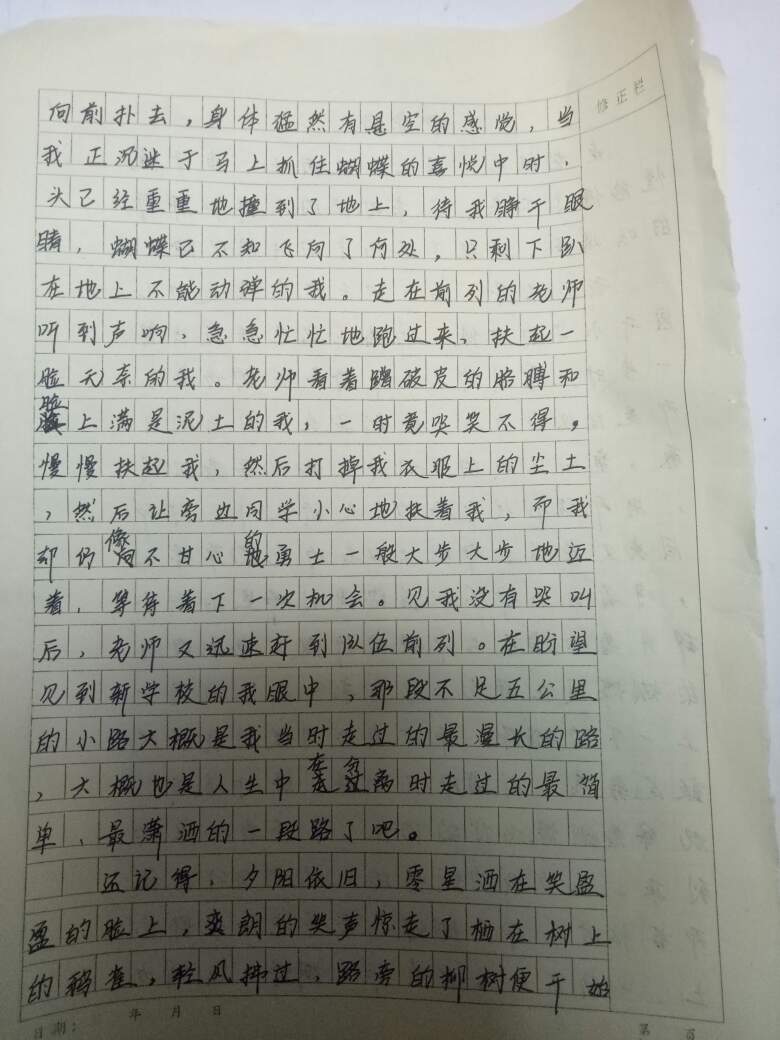 修正栏
向前扑去，身体猛然有悬空的感觉，当
我正沉迷于马上抓住蝴蝶的喜悦中时，
头已经重重地撞到了地上，待我睁开眼
睛，蝴蝶已不知飞向了何处，只剩下趴
在地上不能动弹的我。走在前列的老师
听到声响，急急忙忙地跑过来，扶起一
脸无奈的我。老师看着蹭破皮的胳膊和
脸上满是泥土的我，一时竟哭笑不得，
慢慢扶起我，然后打掉我衣服上的尘土
，然后让旁边同学小心地扶着我，而我
却仍像不甘心的勇士一般大步大步地迈
着，等待着下一次机会。见我没有哭叫
后，老师又迅速赶到队伍前列。在盼望
见到新学校的我眼中，那段不足五公里
的小路大概是我当时走过的最漫长的路
，大概也是人生中在分离时走过的最简
单、最潇洒的一段路了吧。
还记得，夕阳依旧，零星洒在笑盈
盈的脸上，爽朗的笑声惊走了栖在树上
的鸦雀，轻风拂过，路旁的柳树便开始
日期： 年 月 日 第 页